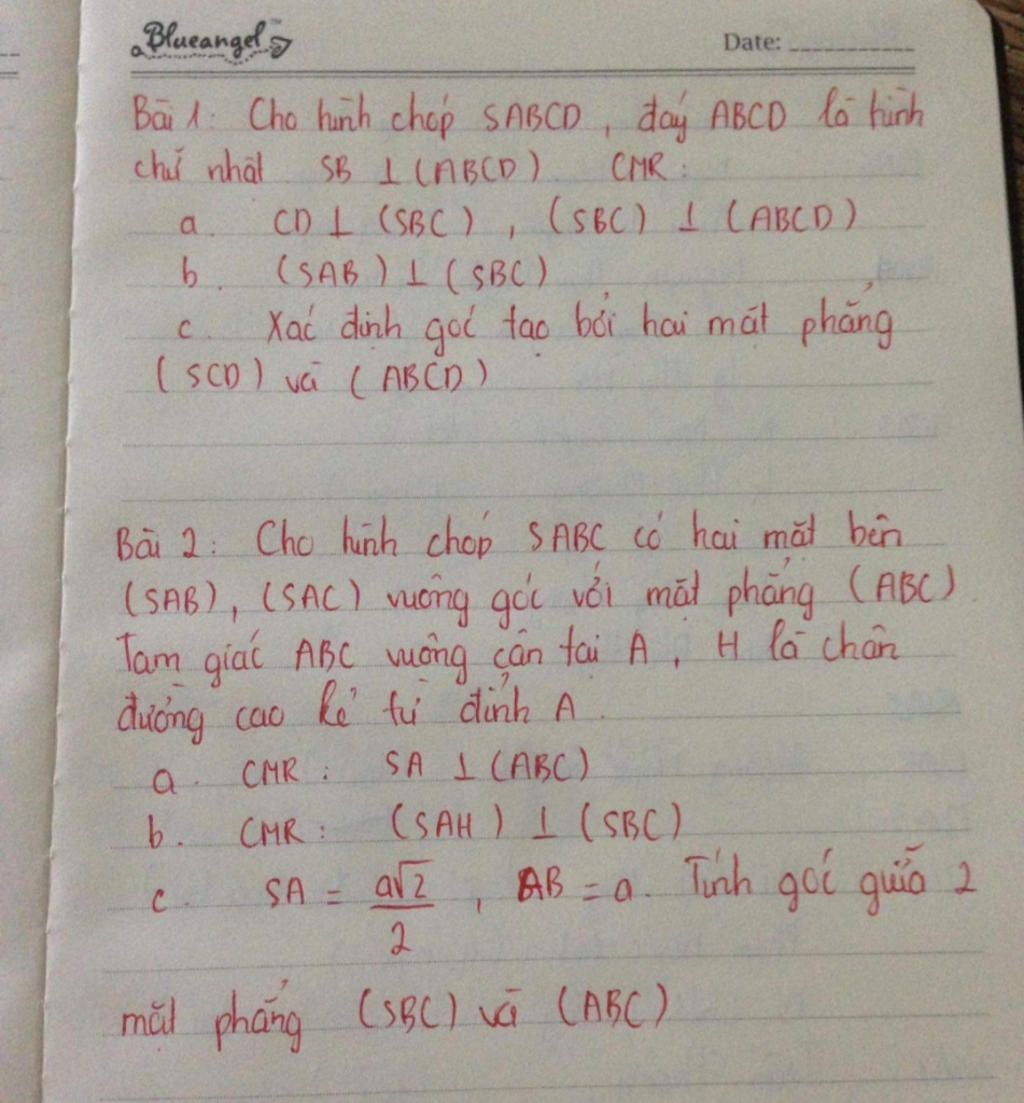 Blueangel
Date:
Bài 1: Cho hình chóp SABCD, đáy ABCD là hình
chữ nhật SB ⊥ (ABCD) CMR:
a. CD ⊥ (SBC), (SBC) ⊥ (ABCD)
b. (SAB) ⊥ (SBC)
c. Xác định góc tạo bởi hai mặt phẳng
(SCD) và (ABCD)
Bài 2: Cho hình chóp SABC có hai mặt bên
(SAB), (SAC) vuông góc với mặt phẳng (ABC)
Tam giác ABC vuông cân tại A, H là chân
đường cao kẻ từ đỉnh A.
a. CMR: SA ⊥ (ABC)
b. CMR: (SAH) ⊥ (SBC)
c. SA = a√2/2, AB = a. Tính góc giữa 2
mặt phẳng (SBC) và (ABC)